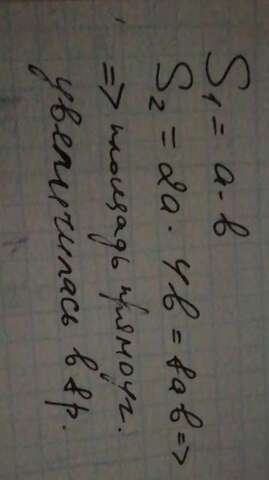 S₁ = a · b
S₂ = 2a · 4b = 8ab =>
=> площадь прямоуг.
увеличилась в 8 р.